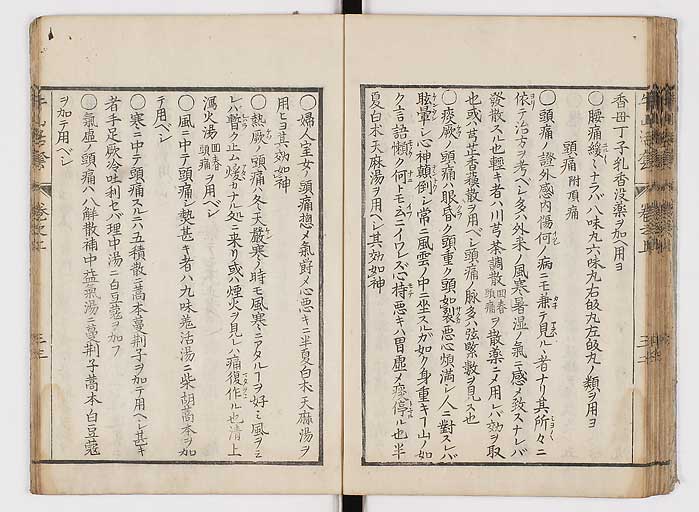 香毋丁子乳香没薬ヲ加ヘ用ヨ
〇腰痛緩ニナラバ八味丸六味丸右皈丸左皈丸ノ類ヲ用ヨ
頭痛 附項痛
〇頭痛ノ證外感内傷何ノ病ニモ兼テ見ル者ナリ其所々ニ
依テ治方ヲ考ヘシ多ハ外来ノ風寒暑湿ノ氣ニ感メ致スナレバ
發散スル也輕キ者ハ川芎茶調散 回春頭痛 ヲ散薬ニメ用レバ効ヲ取
也或ハ芎芷香蘓散ヲ用ベシ頭痛ノ脉多ハ弦緊数ヲ見ス也
〇痰厥ノ頭痛ハ眼昏ク頭重ク頭如裂悪心煩満シ人ニ對スレバ
眩暈シ心神顛倒シ常ニ風雲ノ中ニ坐スルガ如ク身重キヿ山ノ如
ク言語懶ク何トモ云ニイワレズ心持悪キハ胃虚メ痰停ル也半
夏白朮天麻湯ヲ用ベシ其効如神
〇婦人室女ノ頭痛惣メ氣欝メ心悪キニ半夏白朮天麻湯ヲ
用ヒヨ其効如神
〇熱厥ノ頭痛ハ冬天嚴寒ノ時モ風寒ニアタルヿヲ好ミ風ヲミ
レバ暫ク止ム煖カナル処ニ来リ或ハ煙火ヲ見レハ痛復作ル也清上
瀉火湯 回春頭痛 ヲ用ベシ
〇風ニ中テ頭痛シ熱甚キ者ハ九味羗活湯ニ柴胡藁本ヲ加
テ用ベシ
〇寒ニ中テ頭痛スルニハ五積散ニ藁本蔓荆子ヲ加テ用ヘシ甚キ
者手足厥冷吐利セバ理中湯ニ白豆蔲ヲ加フ
〇氣虚ノ頭痛ハ八解散補中益氣湯ニ蔓荆子藁本白豆蔲
ヲ加テ用ベシ